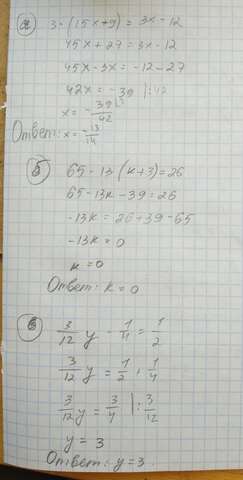 а) 3·(15x+9) = 3x-12
45x+27 = 3x-12
45x-3x = -12-27
42x = -39 |:42
x = -39/42
Ответ: x = -13/14
б) 65-13(k+3)=26
65-13k-39=26
-13k=26+39-65
-13k=0
k=0
Ответ: k=0
в) 3/12 y - 1/4 = 1/2
3/12 y = 1/2 + 1/4
3/12 y = 3/4 |: 3/12
y = 3
Ответ: y=3.